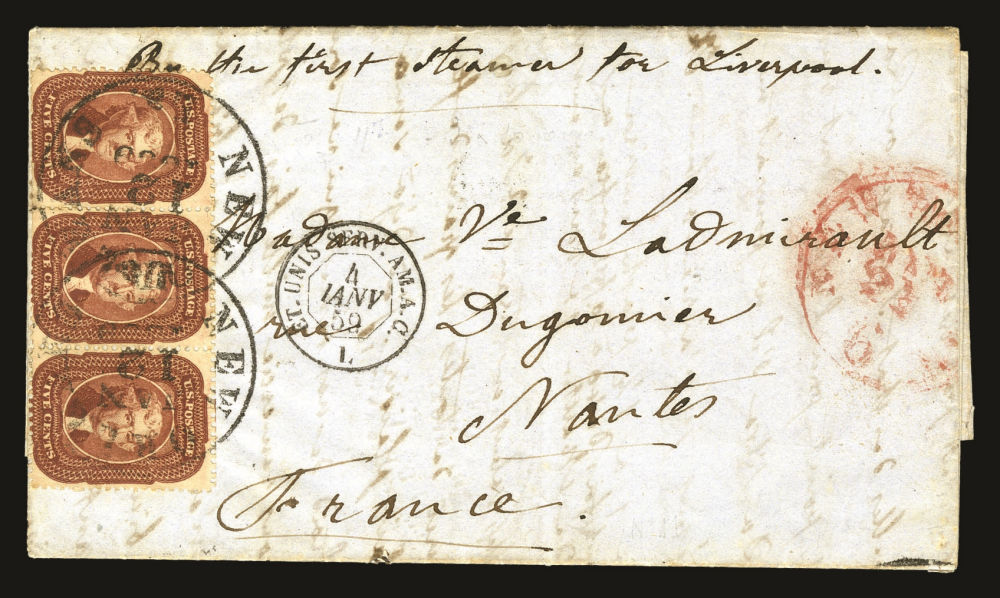 By the first steamer for Liverpool.
Madame Ve Ladmirault
rue Dugomier
Nantes
France.
U.S. POSTAGE
FIVE CENTS
U.S. POSTAGE
FIVE CENTS
U.S. POSTAGE
FIVE CENTS
NEW
12
NEW
12
ET. UNIS SERV. AM. A.C.
4
JANV
59